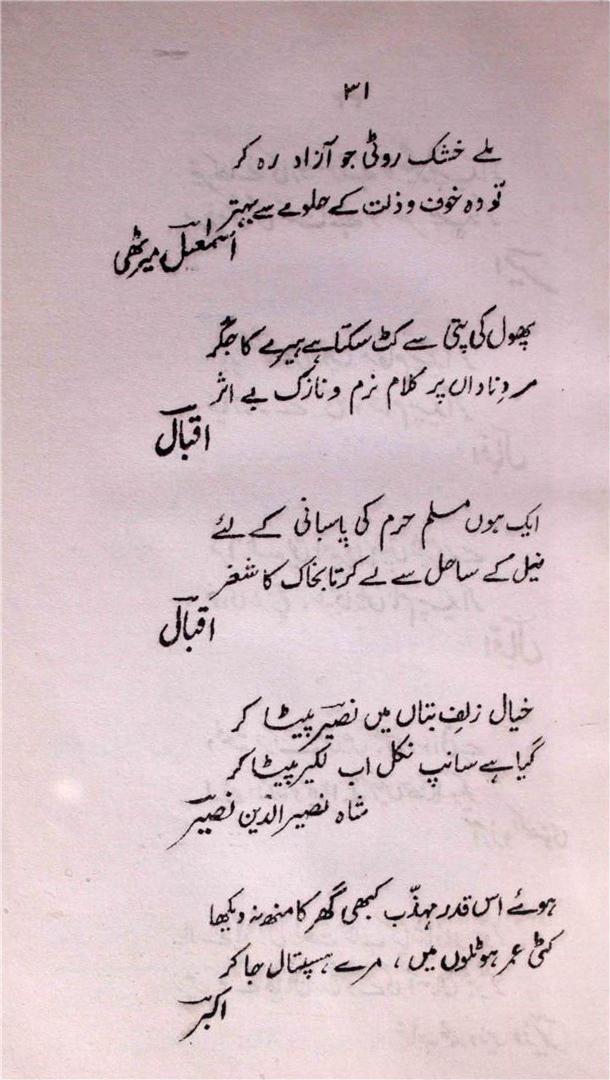 ۳۱
ملے خشک روٹی جو آزاد رہ کر
تو وہ خوف و ذلت کے حلوے سے بہتر
اسمٰعیل میرٹھی
پھول کی پتی سے کٹ سکتا ہے ہیرے کا جگر
مردِ ناداں پر کلام نرم و نازک بے اثر
اقبال
ایک ہوں مسلم حرم کی پاسبانی کے لئے
نیل کے ساحل سے لے کر تا بخاک کاشغر
اقبال
خیال زلفِ بتاں میں نصیر پیٹا کر
گیا ہے سانپ نکل اب لکیر پیٹا کر
شاہ نصیر الدین نصیر
ہوئے اس قدر مہذّب کبھی گھر کا منھ نہ دیکھا
کٹی عمر ہوٹلوں میں، مرے ہسپتال جا کر
اکبر